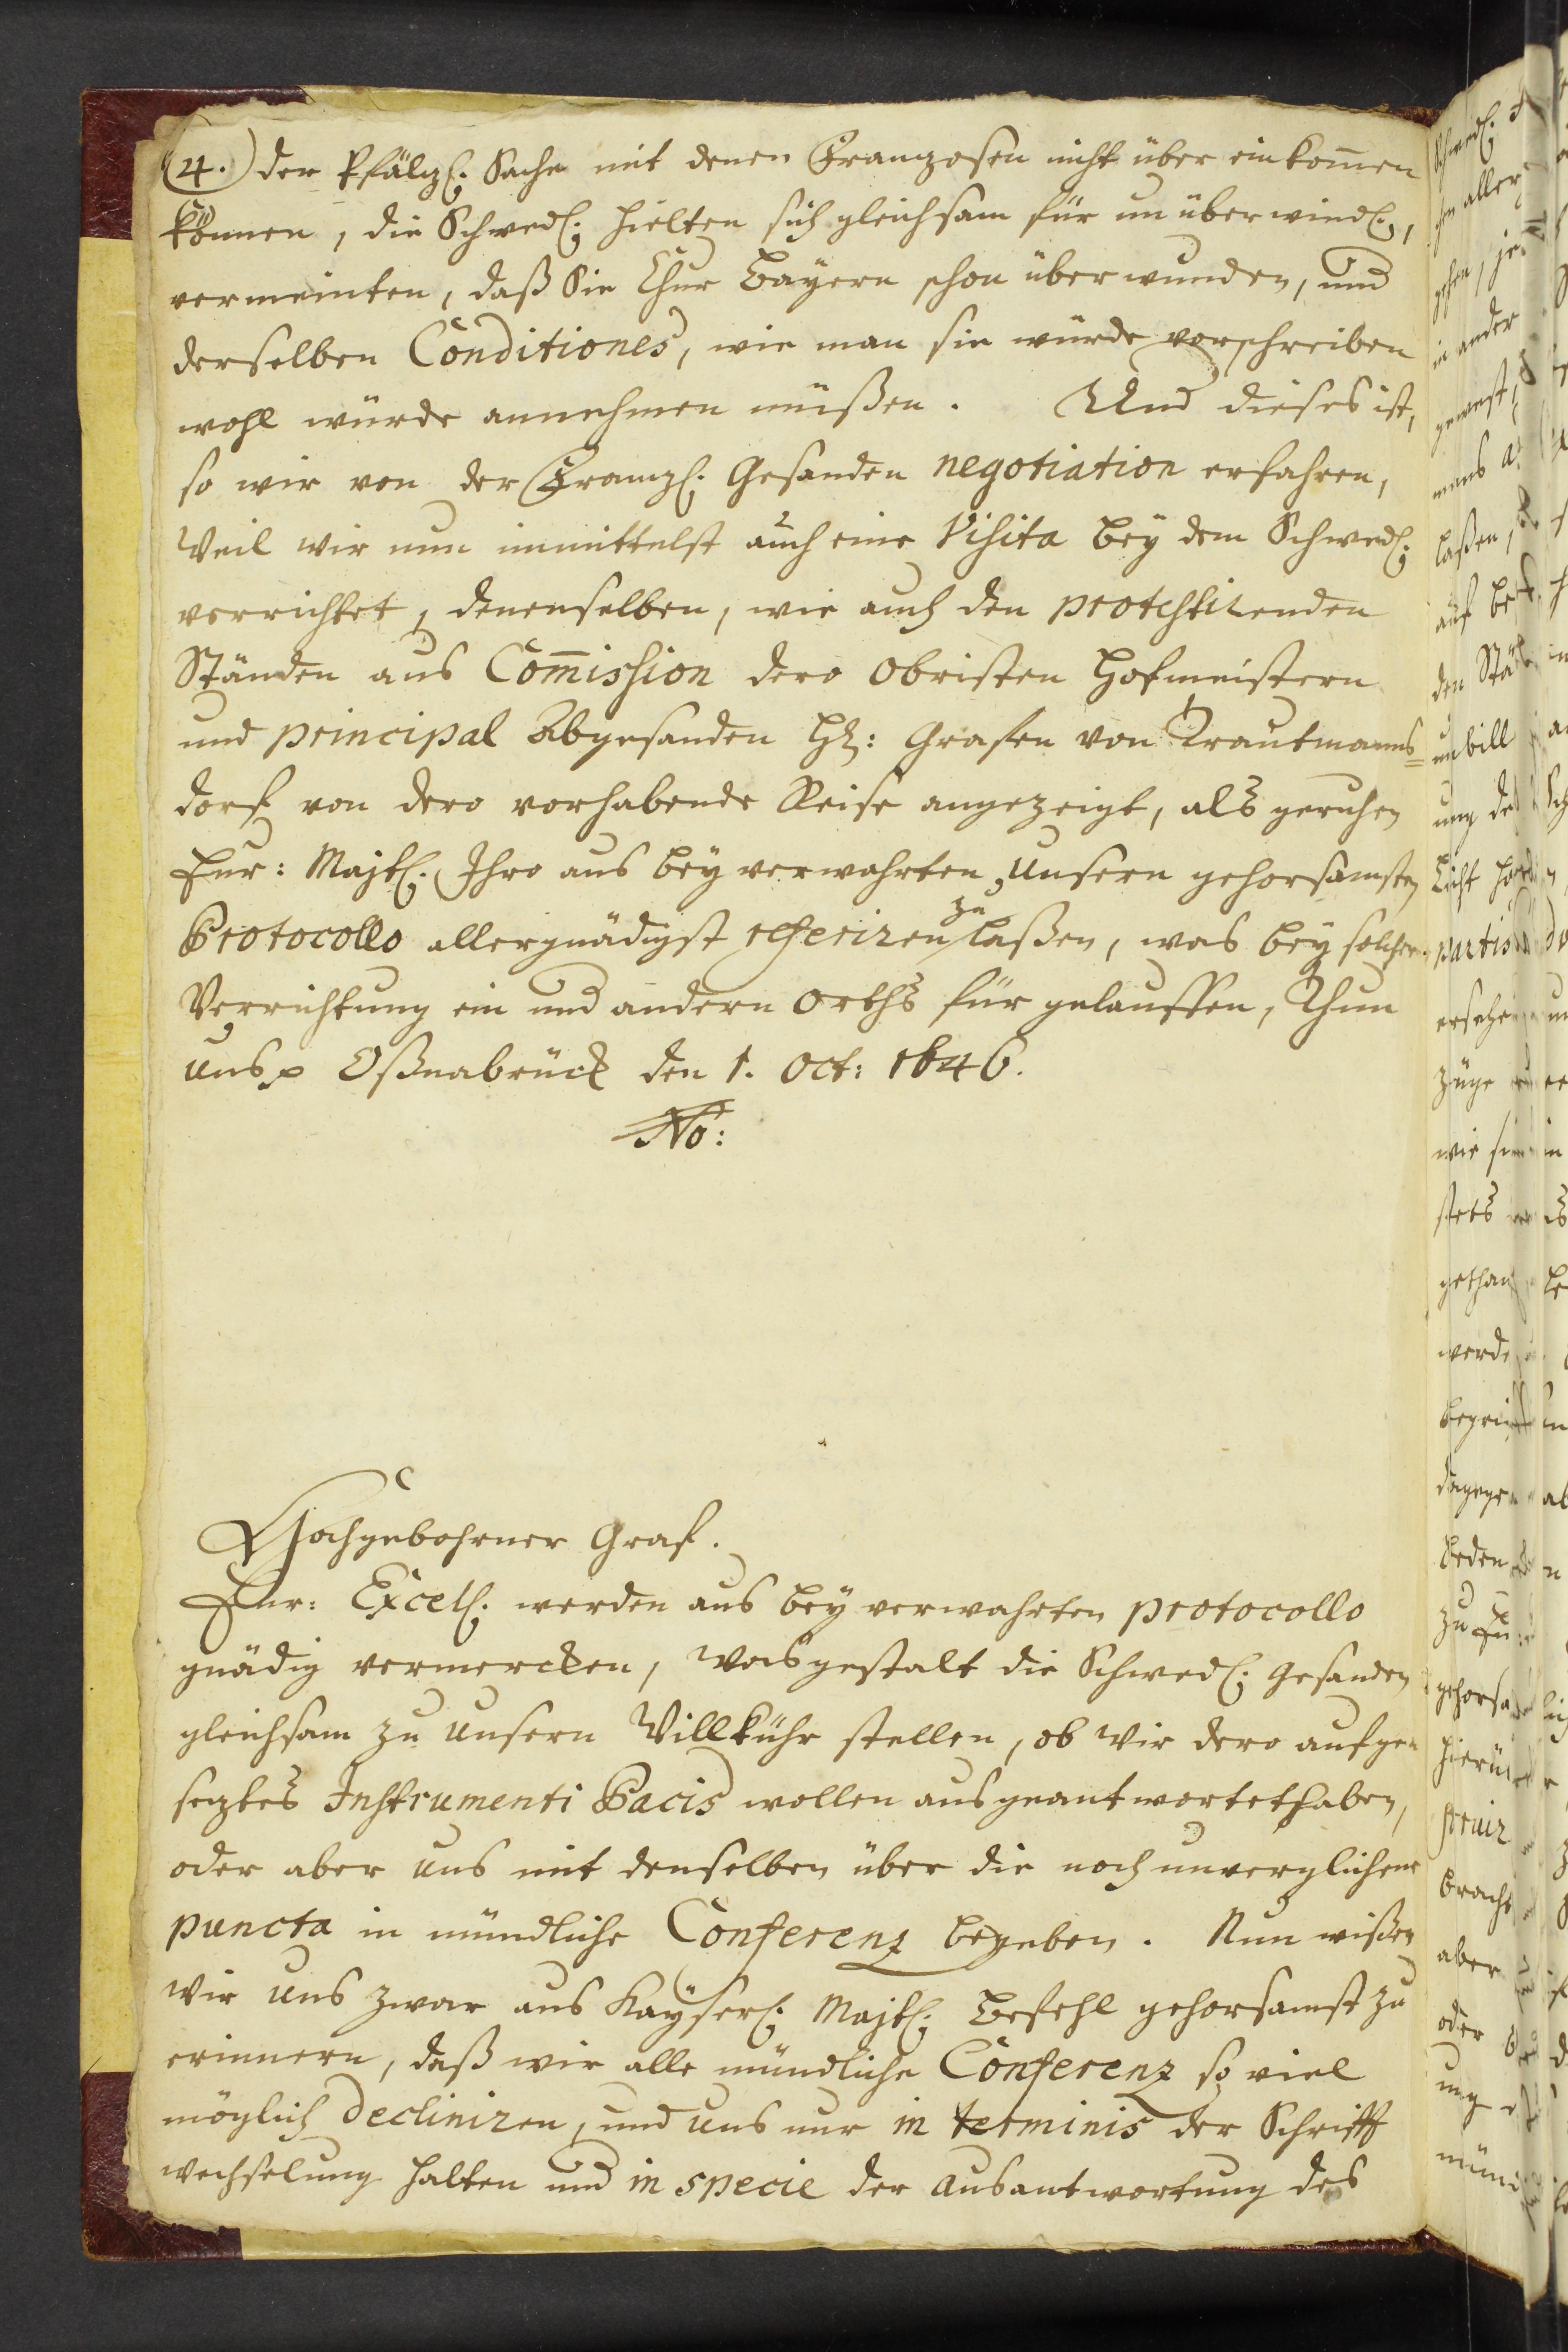 (4.) der Pfälzl: Sache mit denen Franzosen nicht über ein kom̄en
können, die Schwedl: hielten sich gleichsam für un überwindl:,
vermeinten, daß Sie Chur Bayern schon überwunden, und
derselben Conditiones, wie man sie würde vorschreiben
wohl würde annehmen müßen. Und dieses ist,
so wir von der Franzl: Gesanden negotiation erfahren,
Weil wir nun inmittelst auch eine Visita bey dem Schwedl:
verrichtet, denenselben, wie auch den protestirenden
Ständen aus Com̄ission dero Obristen Hofmeistern
und principal Abgesanden H: Grafen von Trautmanns=
dorf von dero vorhabende Reise angezeigt, als geruhen
Eur: Majtl: Ihro aus bey verwahrten, Unsern gehorsamsten
Protocollo allergnädigst referiren zu laßen, was bey solcher
Verrichtung ein und andern Orths für gelauffen, Thun
uns p Oßnabrück den 1. Oct: 1646.
No:
Hochgebohrner Graf.
Eur: Excell: werden aus bey verwahrten protocollo
gnädig vermercken, was gestalt die Schwedl: Gesanden
gleichsam zu Unsern Willkühr stellen, ob wir dero aufge
seztes Instrumenti Pacis wollen ausgeantwortet haben,
oder aber uns mit denselben über die noch unverglichene
puncta in mündliche Conferenz begeben. Nun wißen
wir uns zwar aus Kayserl: Majtl: Befehl gehorsamst zu
erinnern, daß wir alle mündliche Conferenz so viel
möglich decliniren, und uns nur in terminis der Schrifft
wechselung halten und in specie der ausantwortung des